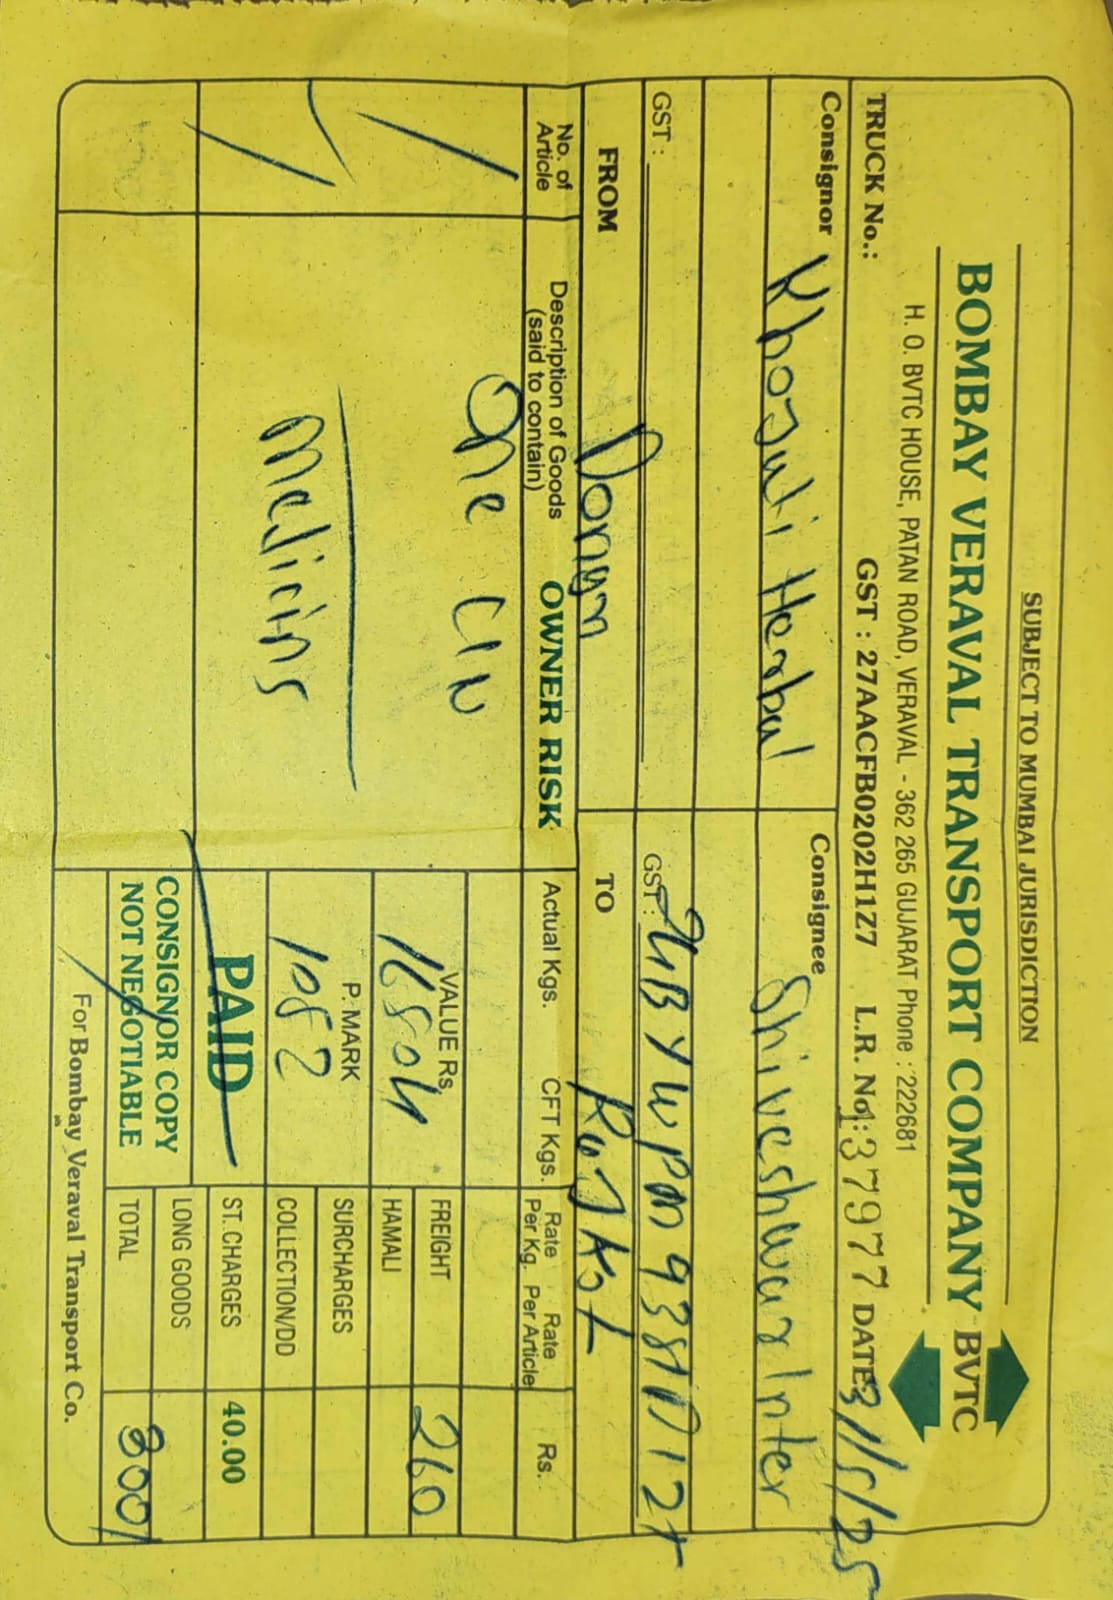 SUBJECT TO MUMBAI JURISDICTION
BOMBAY VERAVAL TRANSPORT COMPANY BVTC
H. O. BVTC HOUSE, PATAN ROAD, VERAVAL - 362 265 GUJARAT Phone : 222681
TRUCK No.: GST : 27AACFB0202H1Z7 L.R. No.: 137977 DATE: 31/5/25
Consignor Khojati Herbal
Consignee Shiveshwar Inter
GST :
GST :
FROM Dongri
TO Rajkot
No. of Article
Description of Goods (said to contain)
OWNER RISK
Actual Kgs.
CFT Kgs.
Rate Per Kg.
Rate Per Article
Rs.
1
One C/N
Medicins
VALUE Rs. 16504
P. MARK 1052
PAID
CONSIGNOR COPY
NOT NEGOTIABLE
FREIGHT 260
HAMALI
SURCHARGES
COLLECTION/DD
ST.CHARGES 40.00
LONG GOODS
TOTAL 300/
For Bombay Veraval Transport Co.